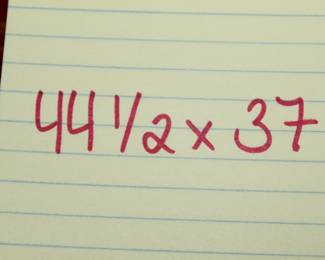 44 1/2 x 37